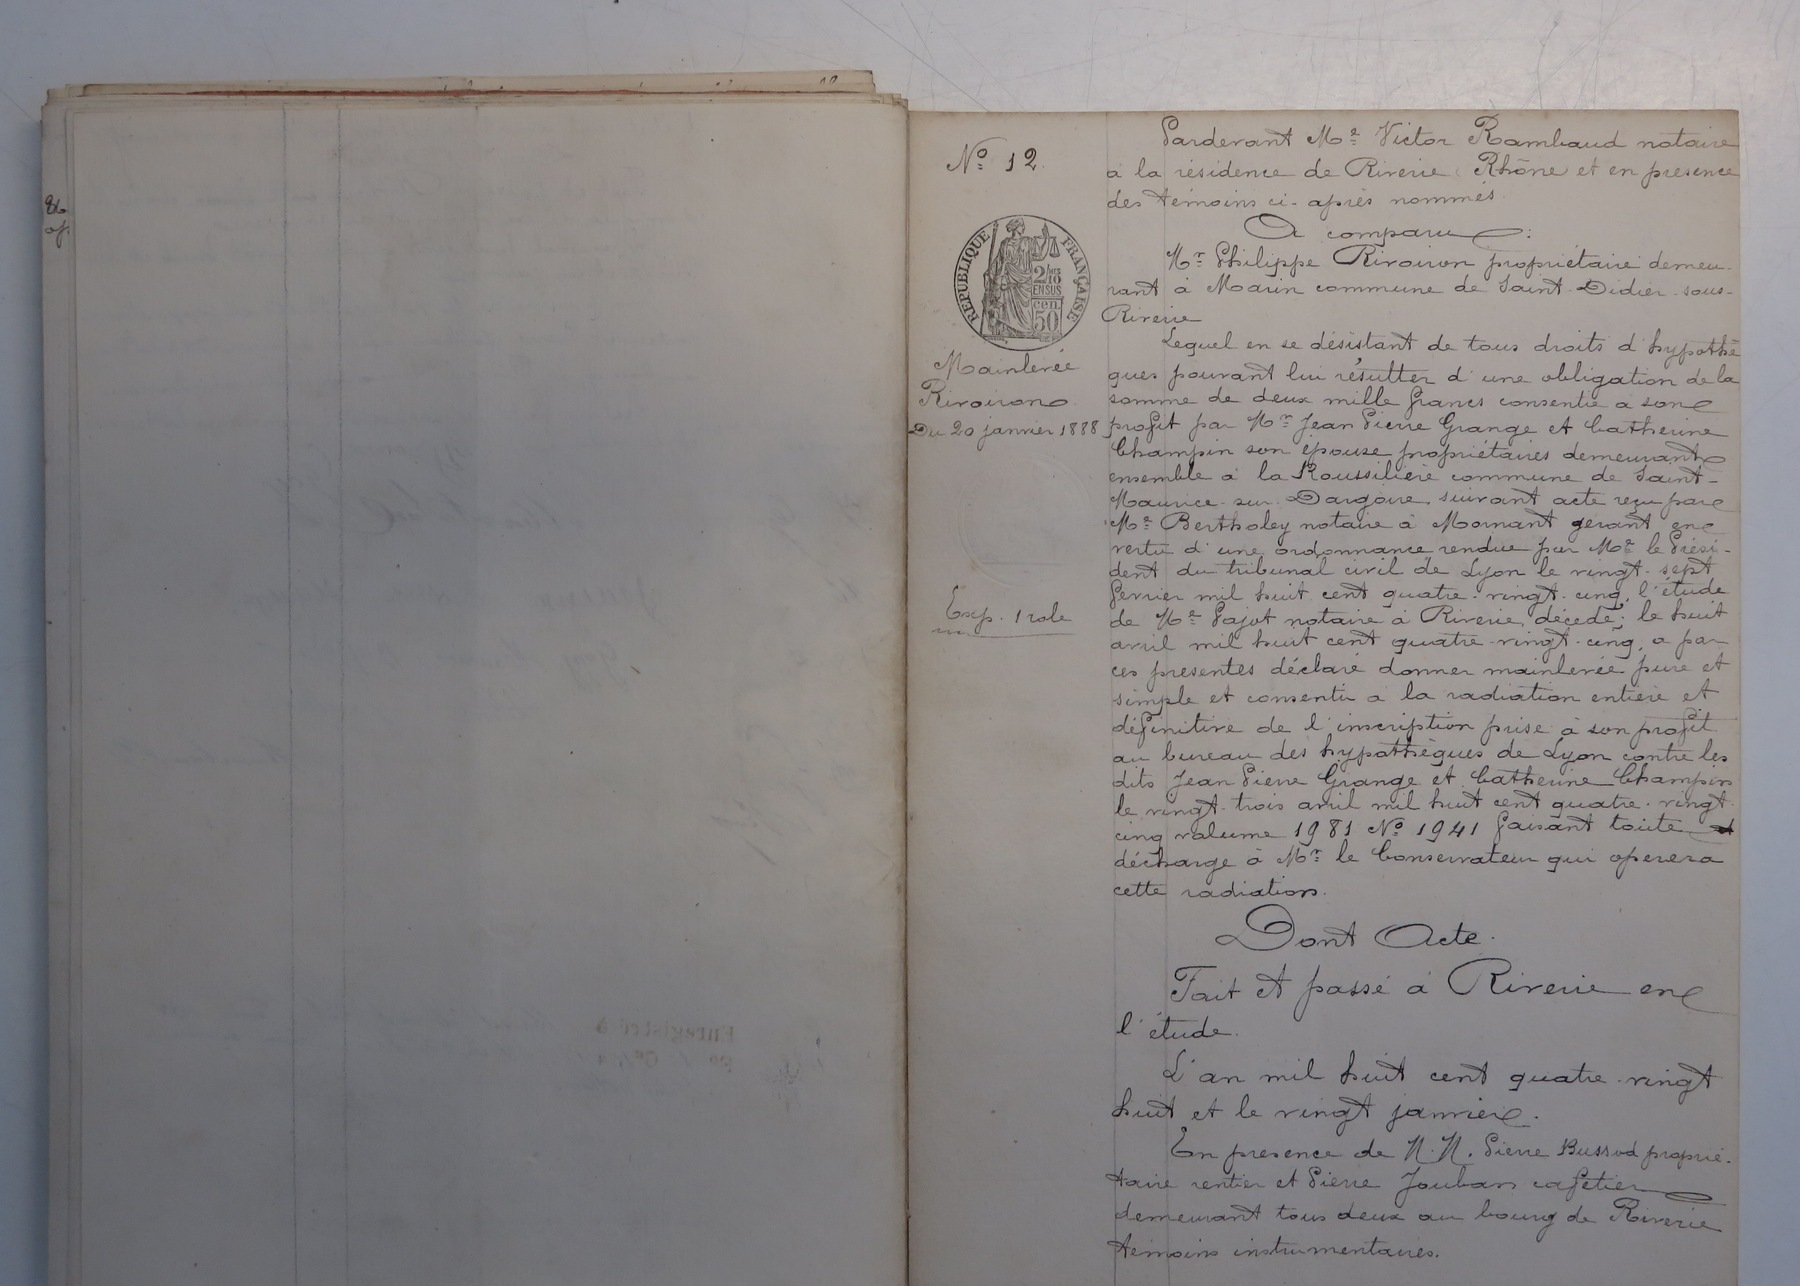 86
N° 12.
REPUBLIQUE FRANÇAISE
2/10 EN SUS
cen. 50
Mainlevée
Rivoiron
Du 20 janvier 1888
Exp. 1 role
Pardevant Me Victor Rambaud notaire
à la résidence de Riverie (Rhône) et en presence
des témoins ci-après nommés.
A comparu :
Mr Philippe Rivoiron propriétaire demeu-
rant à Marin commune de Saint-Didier-sous-
Riverie
Lequel en se désistant de tous droits d'hypothè
ques pouvant lui résulter d'une obligation de la
somme de deux mille francs consentie à son
profit par Mr Jean Pierre Grange et Catherine
Champin son épouse propriétaires demeurant
ensemble à la Roussilière commune de Saint-
Maurice-sur-Dargoire, suivant acte reçu par
Me Bertholey notaire à Mornant gerant en
vertu d'une ordonnance rendue par Mr le Prési-
dent du tribunal civil de Lyon le vingt-sept
fevrier mil huit cent quatre-vingt-cinq, l'étude
de Me Pajot notaire à Riverie, décédé; le huit
avril mil huit cent quatre-vingt-cinq, a par
ces presentes déclaré donner mainlevée pure et
simple et consentir à la radiation entière et
définitive de l'inscription prise à son profit
au bureau des hypothèques de Lyon contre les
dits Jean Pierre Grange et Catherine Champin
le vingt-trois avril mil huit cent quatre-vingt
cinq volume 1981 N° 1941 faisant toute
décharge à Mr le Conservateur qui operera
cette radiation.
Dont Acte.
Fait et passé à Riverie en
l'étude.
L'an mil huit cent quatre-vingt
huit et le vingt janvier.
En presence de M.M. Pierre Bussod proprié-
taire rentier et Pierre Jouban cafetier
demeurant tous deux au bourg de Riverie
témoins instrumentaires.